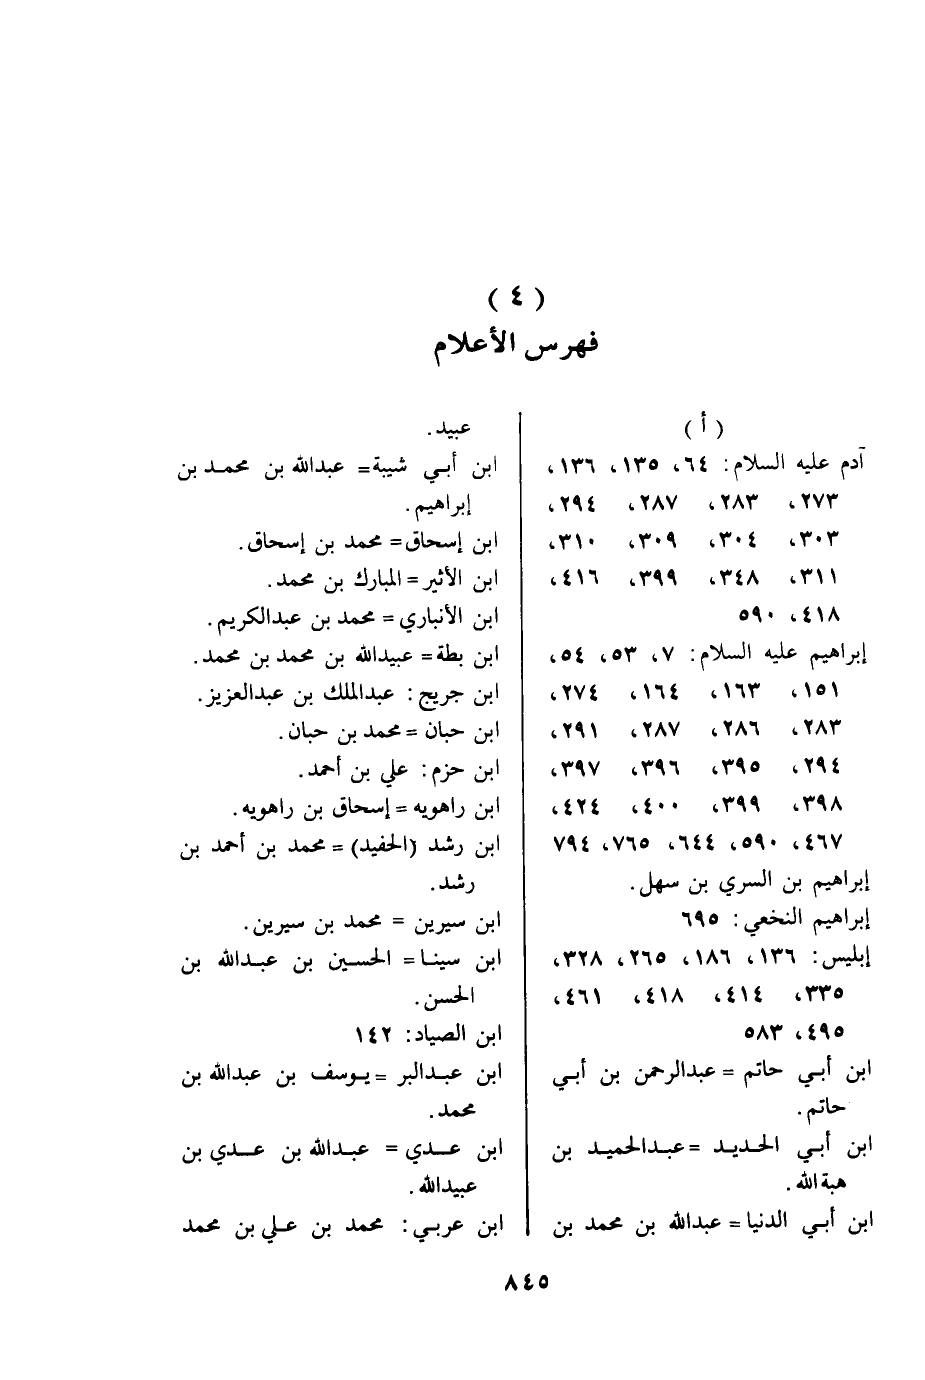 ( ٤ )
فهرس الأعلام
( أ )
آدم عليه السلام: ٦٤، ١٣٥، ١٣٦،
٢٧٣، ٢٨٣، ٢٨٧، ٢٩٤،
٣٠٣، ٣٠٤، ٣٠٩، ٣١٠،
٣١١، ٣٤٨، ٣٩٩، ٤١٦،
٤١٨، ٥٩٠
إبراهيم عليه السلام: ٧، ٥٣، ٥٤،
١٥١، ١٦٣، ١٦٤، ٢٧٤،
٢٨٣، ٢٨٦، ٢٨٧، ٢٩١،
٢٩٤، ٣٩٥، ٣٩٦، ٣٩٧،
٣٩٨، ٣٩٩، ٤٠٠، ٤٢٤،
٤٦٧، ٥٩٠، ٦٤٤، ٧٦٥، ٧٩٤
إبراهيم بن السري بن سهل.
إبراهيم النخعي: ٦٩٥
إبليس: ١٣٦، ١٨٦، ٢٦٥، ٣٢٨،
٣٣٥، ٤١٤، ٤١٨، ٤٦١،
٤٩٥، ٥٨٣
ابن أبي حاتم = عبدالرحمن بن أبي
حاتم.
ابن أبي الحديد = عبدالحميد بن
هبة الله.
ابن أبي الدنيا = عبدالله بن محمد بن
عبيد.
ابن أبي شيبة = عبدالله بن محمد بن
إبراهيم.
ابن إسحاق = محمد بن إسحاق.
ابن الأثير = المبارك بن محمد.
ابن الأنباري = محمد بن عبدالكريم.
ابن بطة = عبيدالله بن محمد بن محمد.
ابن جريج: عبدالملك بن عبدالعزيز.
ابن حبان = محمد بن حبان.
ابن حزم: علي بن أحمد.
ابن راهويه = إسحاق بن راهويه.
ابن رشد (الحفيد) = محمد بن أحمد بن
رشد.
ابن سيرين = محمد بن سيرين.
ابن سينا = الحسين بن عبدالله بن
الحسن.
ابن الصياد: ١٤٢
ابن عبدالبر = يوسف بن عبدالله بن
محمد.
ابن عدي = عبدالله بن عدي بن
عبيدالله.
ابن عربي: محمد بن علي بن محمد
٨٤٥